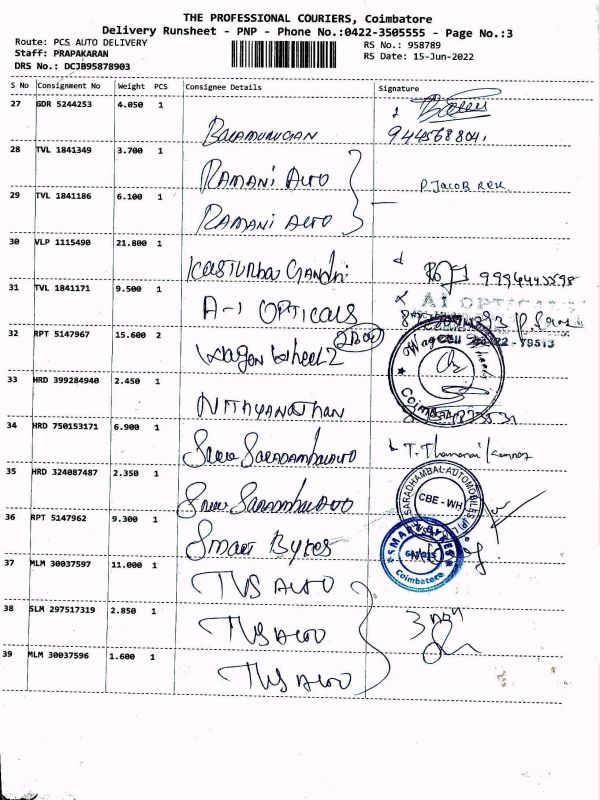 THE PROFESSIONAL COURIERS, Coimbatore
Delivery Runsheet - PNP - Phone No.:0422-3505555 - Page No.:3
Route: PCS AUTO DELIVERY
RS No.: 958789
Staff: PRAPAKARAN
RS Date: 15-Jun-2022
DRS No.: DCJB95878903
S No Consignment No Weight PCS Consignee Details Signature
27 GDR 5244253 4.050 1
BALAMURUGAN
28 TVL 1841349 3.700 1
RAMANI AUTO
P. JACOB
29 TVL 1841186 6.100 1
RAMANI AUTO
30 VLP 1115490 21.800 1
KASTURBA GANDHI
31 TVL 1841171 9.500 1
A-1 OPTICALS
32 RPT 5147967 15.600 2
Wagon Wheel 2
Coimbatore
33 HRD 399284940 2.450 1
NITHYANATHAN
34 HRD 750153171 6.900 1
SREE SARADAMBAL AUTO
T. Thamarai
35 HRD 324087487 2.350 1
SREE SARAMBAL AUTO
SARADHAMBAL AUTOMOBILES (P) L
CBE - WH
36 RPT 5147962 9.300 1
SMART BYTES
SMART BYTES
Coimbatore
37 MLM 30037597 11.000 1
TVS AUTO
38 SLM 297517319 2.850 1
TVS AUTO
3
39 MLM 30037596 1.600 1
TVS AUTO